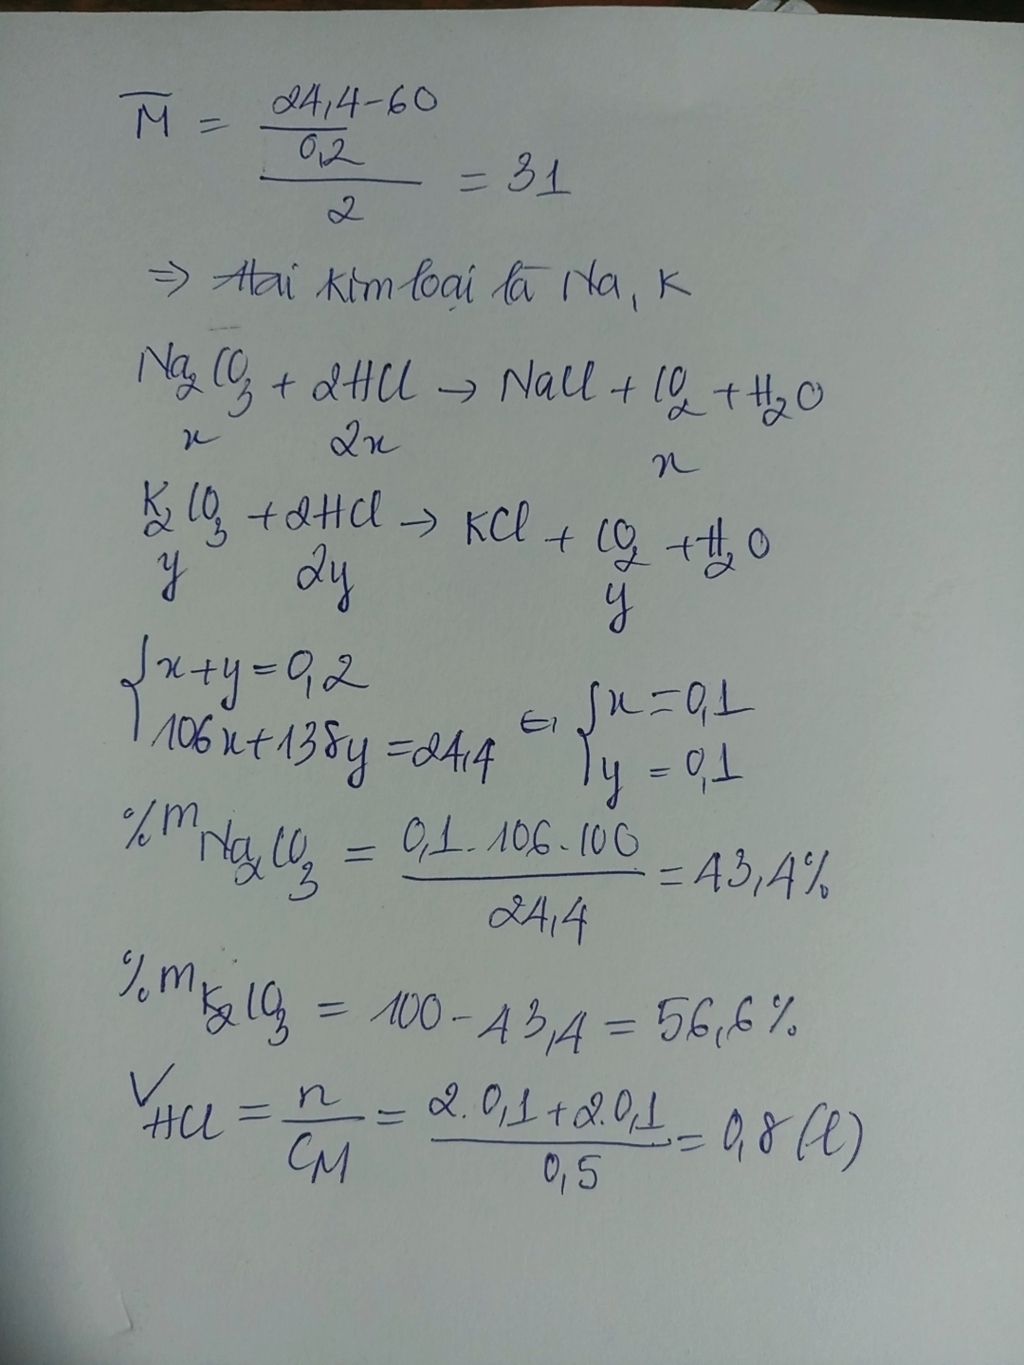 M̄ = 24,4-60
0,2
2
= 31
=> Hai kim loại là Na, K
Na2CO3 + 2HCl → NaCl + CO2 + H2O
x 2x x
K2CO3 + 2HCl → KCl + CO2 + H2O
y 2y y
{ x+y = 0,2
106x+138y = 24,4
⇔ { x = 0,1
y = 0,1
%mNa2CO3 = 0,1.106.100 / 24,4 = 43,4%
%mK2CO3 = 100 - 43,4 = 56,6%
VHCl = n / CM = 2.0,1+2.0,1 / 0,5 = 0,8 (l)